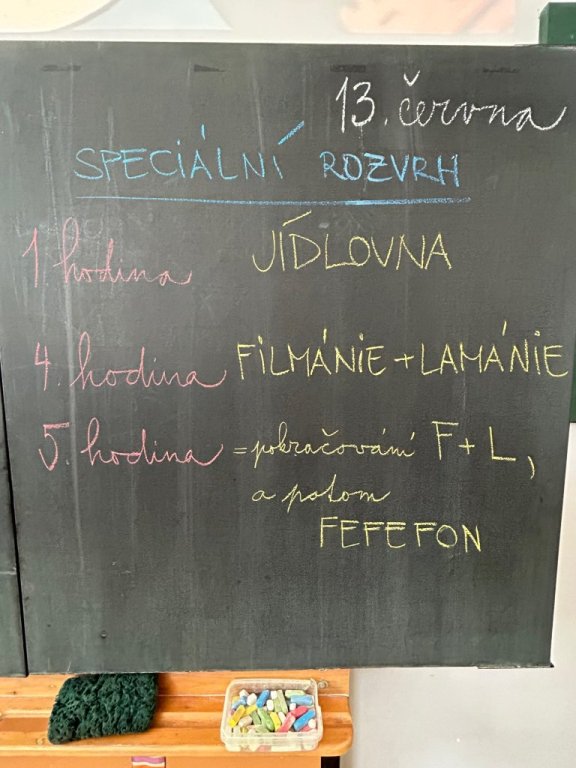 13. června
SPECIÁLNÍ ROZVRH
1 hodina JÍDLOVNA
4. hodina FILMÁNIE + LAMÁNIE
5. hodina = pokračování F + L,
a potom
FEFEFON